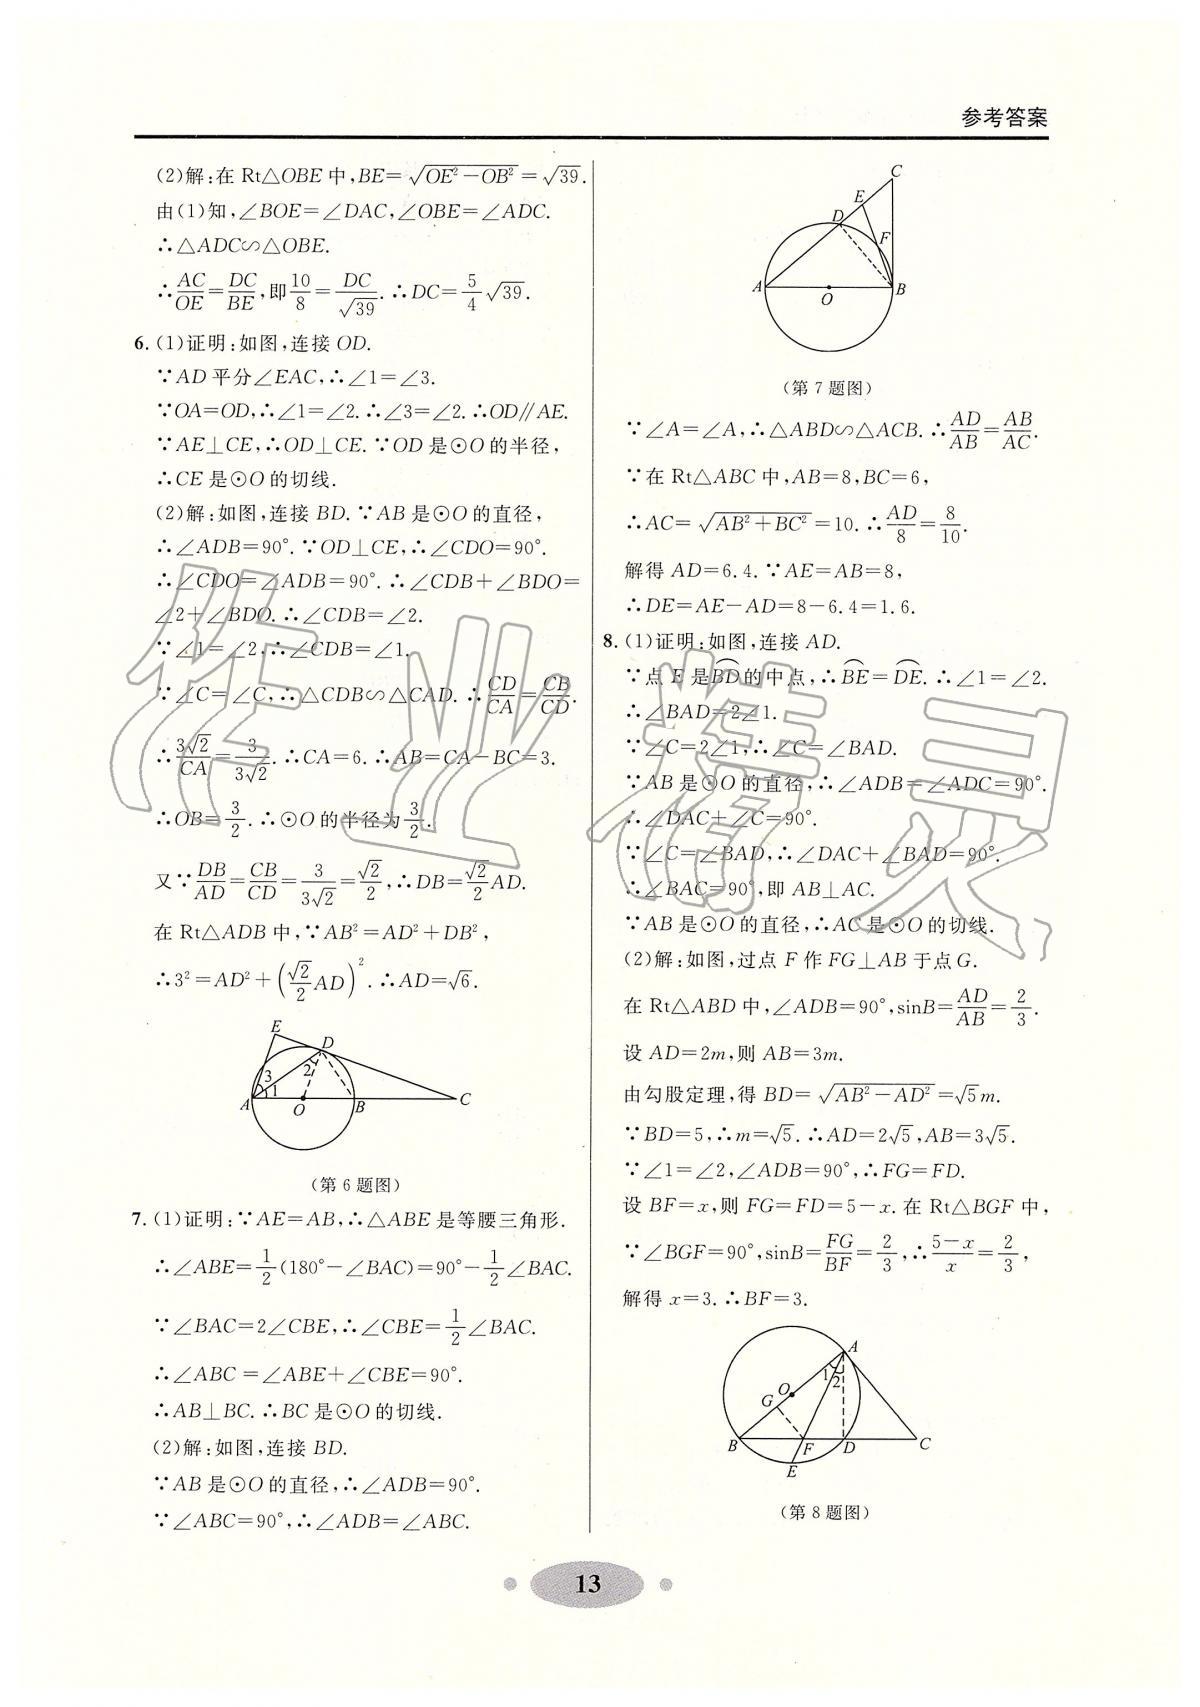 参考答案
(2)解:在 Rt△OBE 中,BE=√(OE²−OB²)=√39.
由(1)知,∠BOE=∠DAC,∠OBE=∠ADC.
∴△ADC∽△OBE.
∴AC/OE=DC/BE,即10/8=DC/√39.∴DC=5/4√39.
6.(1)证明:如图,连接 OD.
∵AD 平分∠EAC,∴∠1=∠3.
∵OA=OD,∴∠1=∠2.∴∠3=∠2.∴OD∥AE.
∵AE⊥CE,∴OD⊥CE.∵OD 是⊙O 的半径,
∴CE 是⊙O 的切线.
(2)解:如图,连接 BD.∵AB 是⊙O 的直径,
∴∠ADB=90°.∵OD⊥CE,∴∠CDO=90°.
∴∠CDO=∠ADB=90°.∴∠CDB+∠BDO=
∠2+∠BDO.∴∠CDB=∠2.
∵∠1=∠2,∴∠CDB=∠1.
∵∠C=∠C,∴△CDB∽△CAD.∴CD/CA=CB/CD.
∴3√2/CA=3/3√2.∴CA=6.∴AB=CA−BC=3.
∴OB=3/2.∴⊙O 的半径为3/2.
又∵DB/AD=CB/CD=3/3√2=√2/2,∴DB=√2/2AD.
在 Rt△ADB 中,∵AB²=AD²+DB²,
∴3²=AD²+(√2/2AD)².∴AD=√6.
E
D
3
2
1
A
O
B
C
(第 6 题图)
7.(1)证明:∵AE=AB,∴△ABE 是等腰三角形.
∴∠ABE=1/2(180°−∠BAC)=90°−1/2∠BAC.
∵∠BAC=2∠CBE,∴∠CBE=1/2∠BAC.
∴∠ABC=∠ABE+∠CBE=90°.
∴AB⊥BC.∴BC 是⊙O 的切线.
(2)解:如图,连接 BD.
∵AB 是⊙O 的直径,∴∠ADB=90°.
∵∠ABC=90°,∴∠ADB=∠ABC.
C
E
D
F
A
O
B
(第 7 题图)
∵∠A=∠A,∴△ABD∽△ACB.∴AD/AB=AB/AC.
∵在 Rt△ABC 中,AB=8,BC=6,
∴AC=√(AB²+BC²)=10.∴AD/8=8/10.
解得 AD=6.4.∵AE=AB=8,
∴DE=AE−AD=8−6.4=1.6.
8.(1)证明:如图,连接 AD.
∵点 E 是B͡D的中点,∴B͡E=D͡E.∴∠1=∠2.
∴∠BAD=2∠1.
∵∠C=2∠1,∴∠C=∠BAD.
∵AB 是⊙O 的直径,∴∠ADB=∠ADC=90°.
∴∠DAC+∠C=90°.
∵∠C=∠BAD,∴∠DAC+∠BAD=90°.
∴∠BAC=90°,即 AB⊥AC.
∵AB 是⊙O 的直径,∴AC 是⊙O 的切线.
(2)解:如图,过点 F 作 FG⊥AB 于点 G.
在 Rt△ABD 中,∠ADB=90°,sinB=AD/AB=2/3.
设 AD=2m,则 AB=3m.
由勾股定理,得 BD=√(AB²−AD²)=√5m.
∵BD=5,∴m=√5.∴AD=2√5,AB=3√5.
∵∠1=∠2,∠ADB=90°,∴FG=FD.
设 BF=x,则 FG=FD=5−x.在 Rt△BGF 中,
∵∠BGF=90°,sinB=FG/BF=2/3,∴(5−x)/x=2/3,
解得 x=3.∴BF=3.
A
1
2
O
G
B
F
D
C
E
(第 8 题图)
13
作业精灵